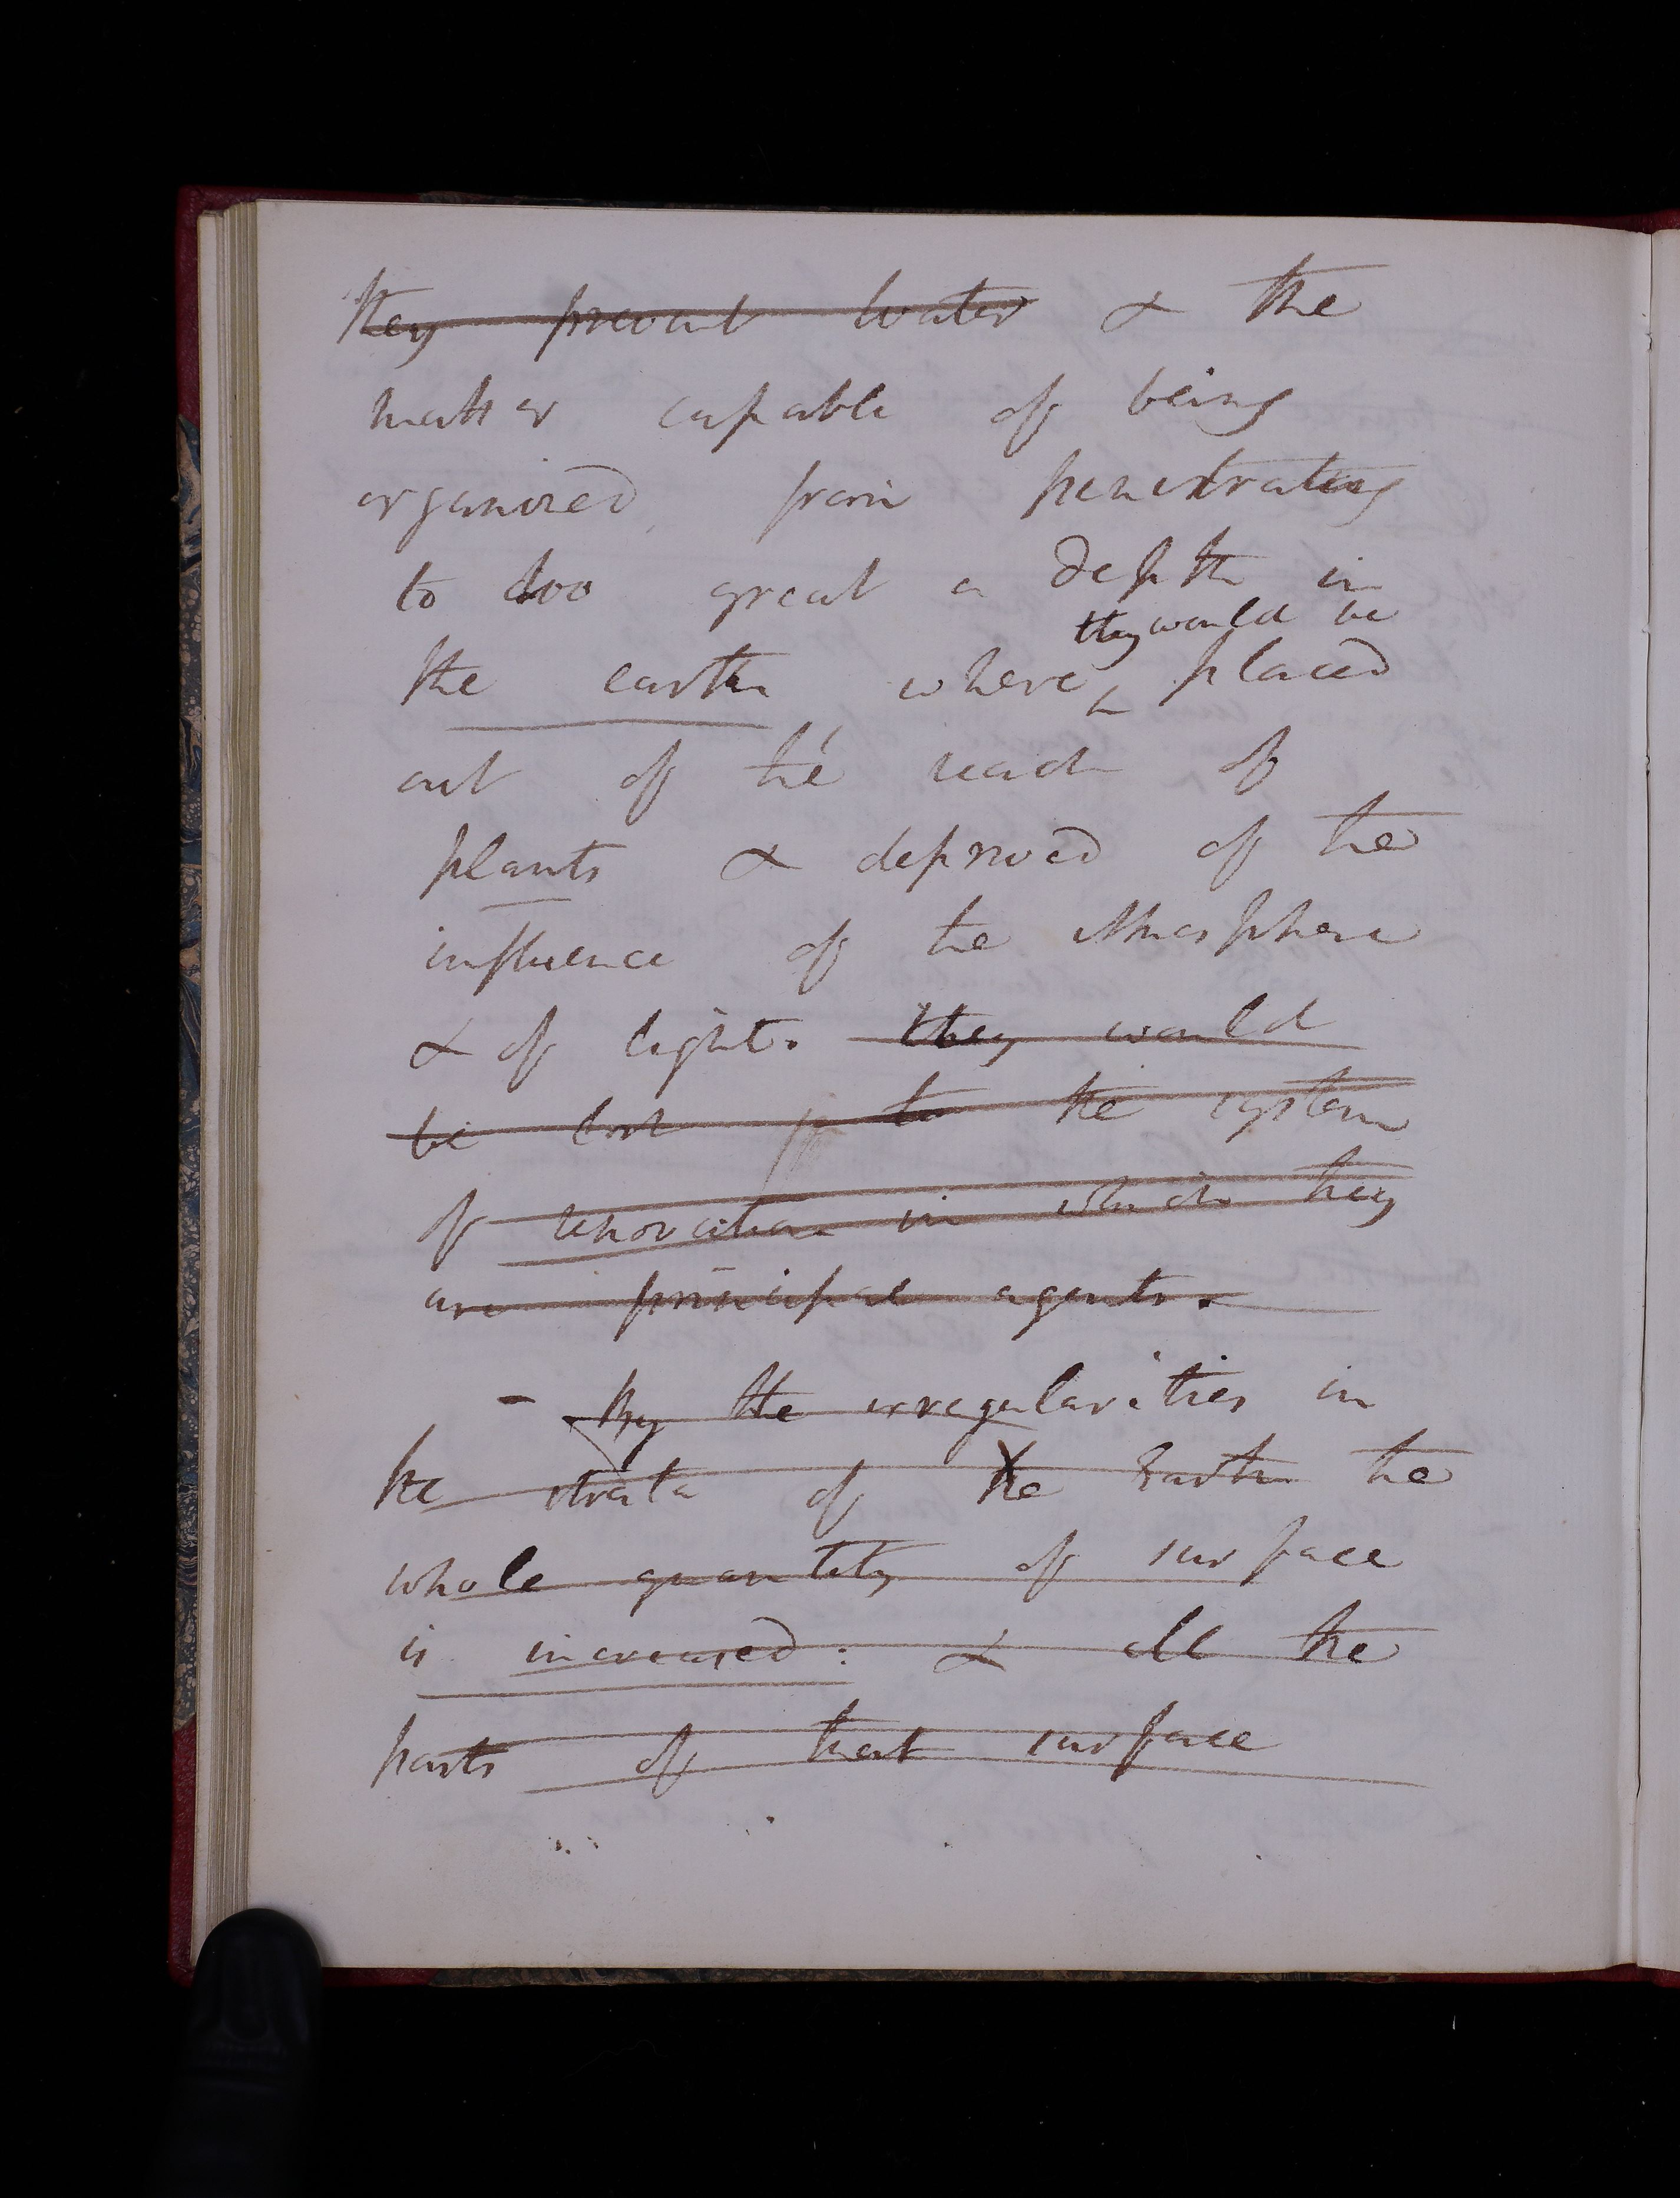 they prevent water & the
matter capable of being
organized from penetrating
to too great a depth in
they would be
the earth where placed
out of the reach of
plants & deprived of the
influence of the atmosphere
& of light. they would
be lost to the system
of renovation in which they
are principal agents.
- By the irregularities in
the strata of the Earth the
whole quantity of surface
is increased: & all the
parts of that surface